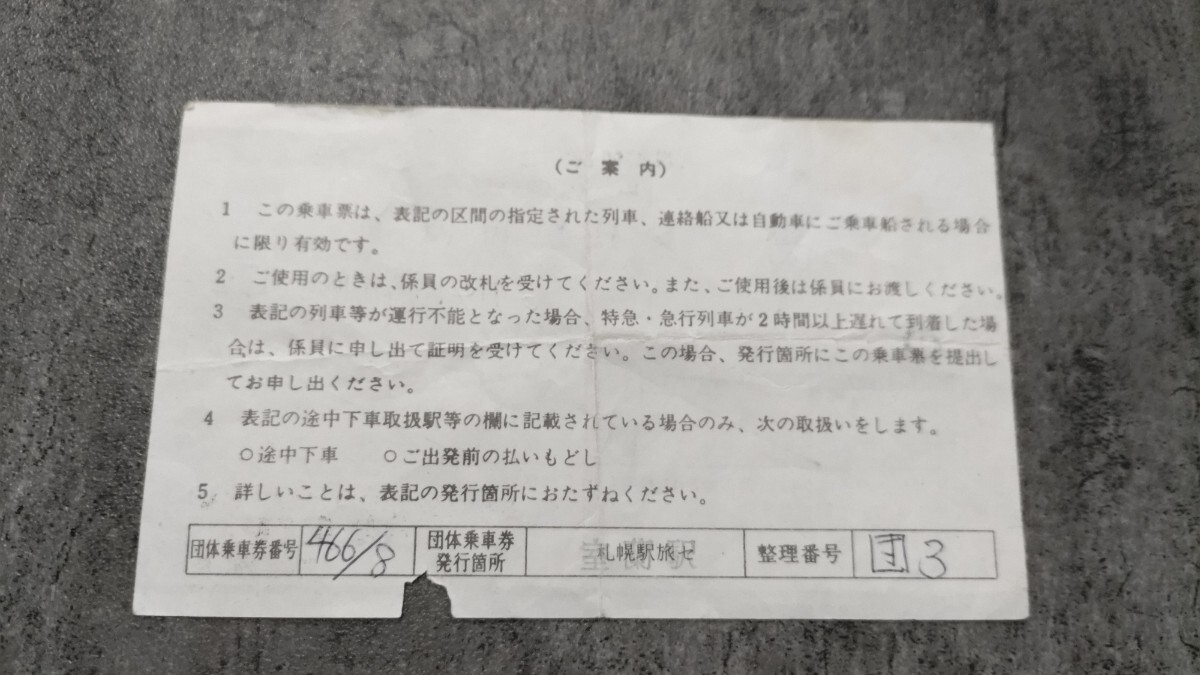 (ご案内)
1 この乗車票は、表記の区間の指定された列車、連絡船又は自動車にご乗車船される場合
に限り有効です。
2 ご使用のときは、係員の改札を受けてください。また、ご使用後は係員にお渡しください。
3 表記の列車等が運行不能となった場合、特急・急行列車が2時間以上遅れて到着した場
合は、係員に申し出て証明を受けてください。この場合、発行箇所にこの乗車票を提出し
てお申し出ください。
4 表記の途中下車取扱駅等の欄に記載されている場合のみ、次の取扱いをします。
○途中下車 ○ご出発前の払いもどし
5 詳しいことは、表記の発行箇所におたずねください。
団体乗車券番号 466/8 団体乗車券
発行箇所 札幌駅旅セ 室蘭駅 整理番号 団 3